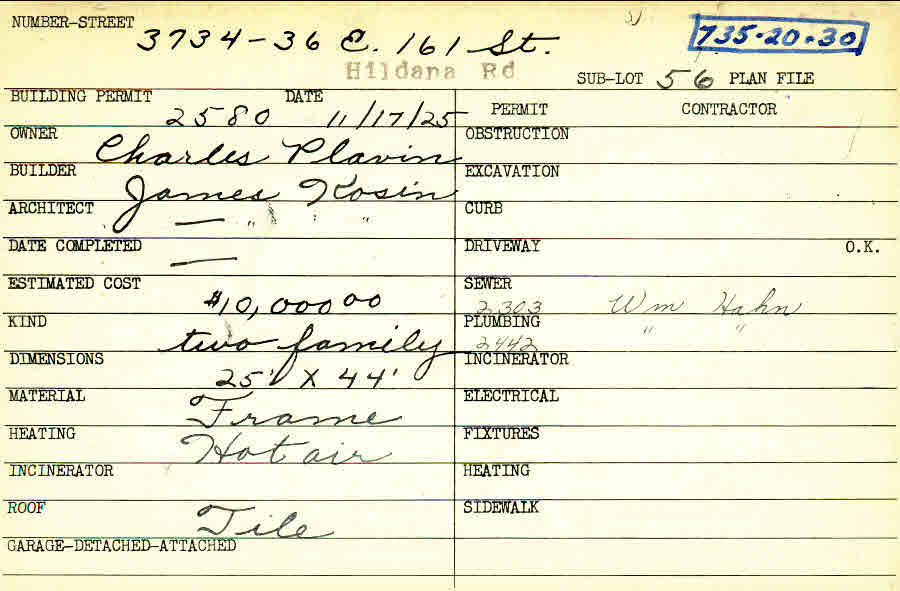 NUMBER-STREET 3734-36 E. 161 St. 735-20-30
Hildana Rd SUB-LOT 56 PLAN FILE
BUILDING PERMIT 2580 DATE 11/17/25 PERMIT CONTRACTOR
OWNER Charles Plavin OBSTRUCTION
BUILDER James Kosin EXCAVATION
ARCHITECT — " " " CURB
DATE COMPLETED — DRIVEWAY O.K.
ESTIMATED COST $10,000 00 SEWER 2303 Wm Hahn
KIND two family PLUMBING 2442 " "
DIMENSIONS 25' X 44' INCINERATOR
MATERIAL Frame ELECTRICAL
HEATING Hot air FIXTURES
INCINERATOR HEATING
ROOF Tile SIDEWALK
GARAGE-DETACHED-ATTACHED